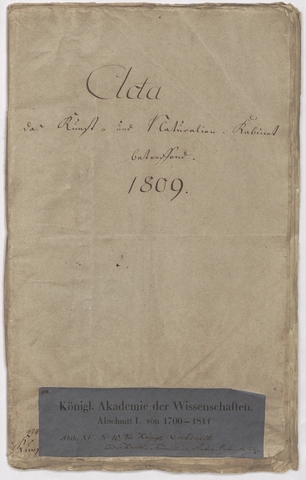 Acta
das Kunst- und Naturalien-Kabinet
betreffend.
1809.
Königl. Akademie der Wissenschaften.
Abschnitt I. von 1700–1811
Abth. XV. N. 10.